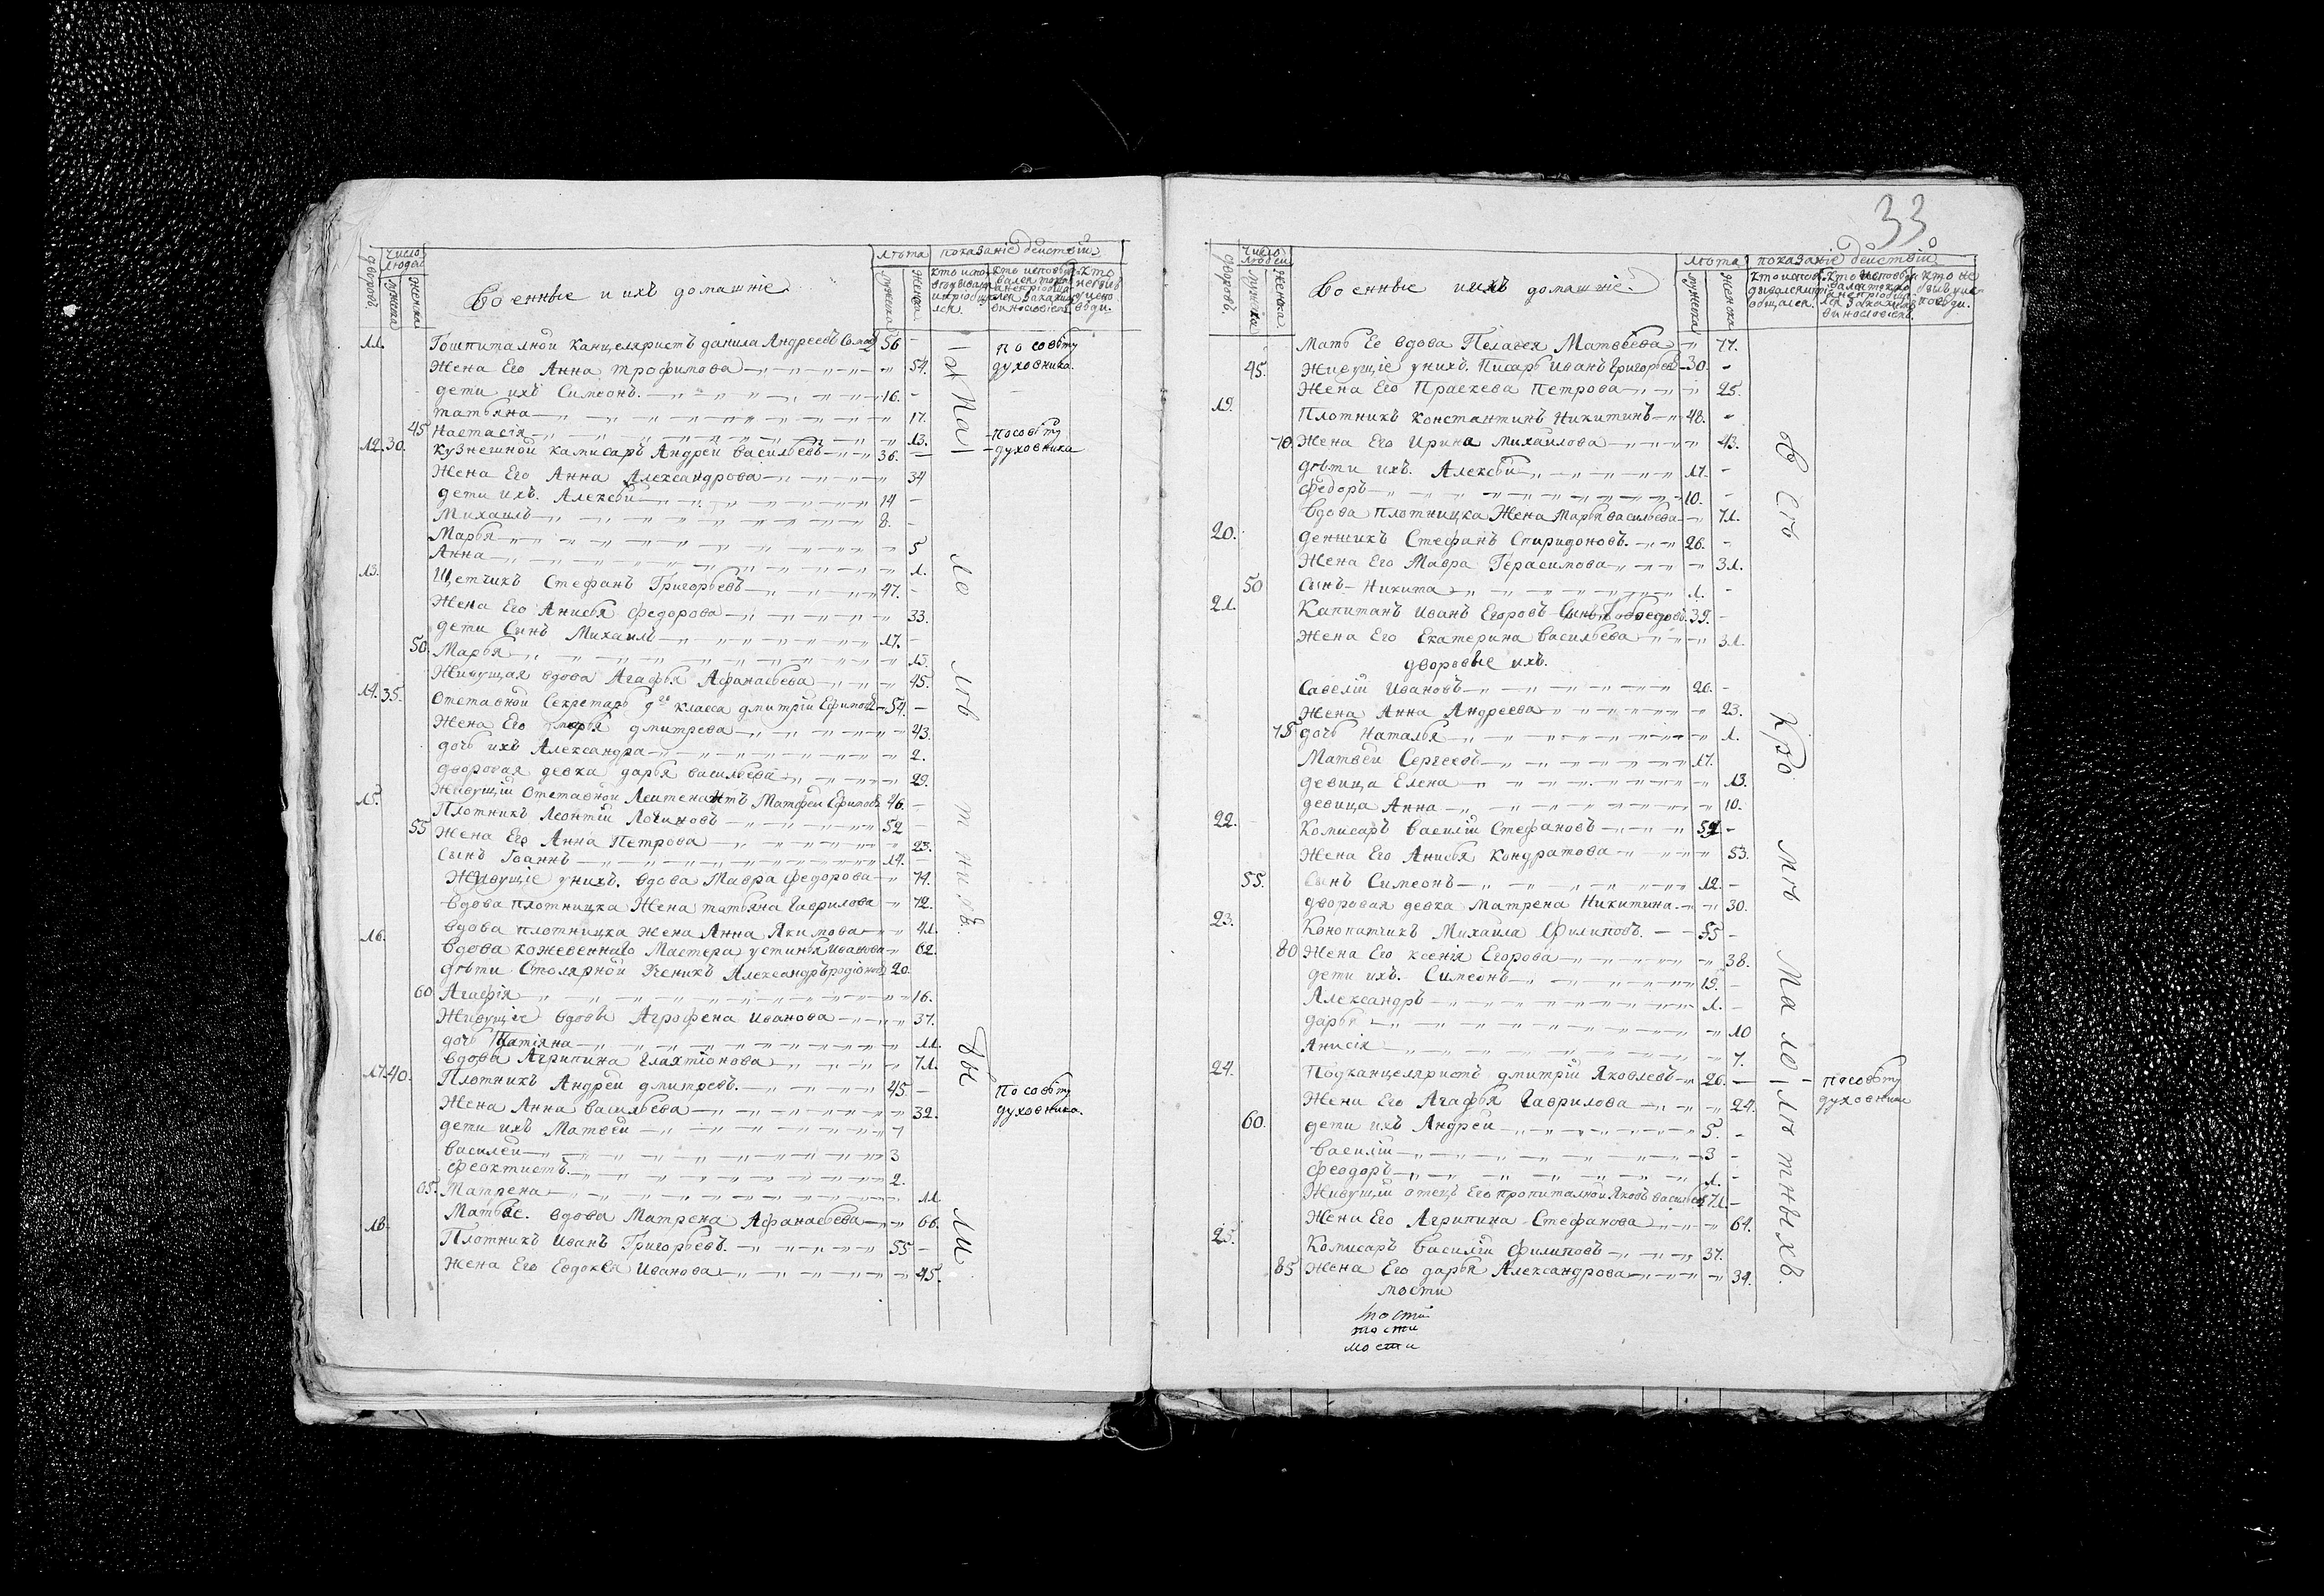 дворовъ.
число людей
мужеска
женска
Военные и ихъ домашніе.
лѣта
мужеска
женска
показаніе действій
11. Гошпиталной канцеляристъ данила Андреевъ 56 - по совѣту
Жена Его Анна трофимова 54. духовника.
дети ихъ Симеонъ. 16. -
татьяна 17.
45 Настасія 13. по совѣту
12. 30. Кузнешной камисаръ Андрей Васильевъ 36. - духовника
Жена Его Анна Александрова 34
дети ихъ. Алексѣй 14 -
Михаилъ 8. -
Марья 5
Анна 1.
13. Щетчикъ Стефанъ Григорьевъ 47. -
Жена Его Анисья Федорова 33.
дети Сынъ Михаилъ 17. -
50. Марья 15.
Живущая вдова Агафья Афанасьева 45.
14. 35. Отставной Секретарь 9го класса дмитрій Ефимовъ 54. -
Жена Его дмитрева 43.
дочь ихъ Александра 2.
дворовая девка дарья васильева 29.
Живущій Отставной Леитенантъ Матфей Ефимовъ 46. -
15. Плотникъ Леонтій Логиновъ 52 -
55 Жена Его Анна Петрова 23.
Сынъ Іоаннъ 14. -
Живущіе унихъ. вдова Мавра Федорова 74.
вдова плотницка Жена татьяна Гаврилова 72.
вдова плотницка жена Анна Якимова 41.
16. Вдова кожевеннаго Мастера устинья Иванова 62.
дѣти Столярной Ученикъ Александръ родіоновъ 20.
60 Агафія 16.
Живущіе вдовы Агрофена Иванова 37.
дочь Татіяна 11.
вдова Агрипина Глахтіонова 71.
17. 40. Плотникъ Андрей дмитревъ. 45 - По совѣту
Жена Анна васильева 32. духовника.
дети ихъ Матвей 7
Василей 3
Феоктистъ. 2.
65. Матрена 11.
Мать Ее. вдова Матрена Афанасьева 66.
18. Плотникъ Иванъ Григорьевъ. 55 -
Жена Его Евдокѣа Иванова 45.
33
дворовъ.
число людей
мужеска
женска
Военные и ихъ домашніе.
лѣта
мужеска
женска
показаніе действій
Мать Ее вдова Пелагея Матвѣева 77.
45. Живущіе унихъ. Писарь Иванъ Григорьевъ 30. -
Жена Его Праскева Петрова 25.
19. Плотникъ Константинъ Никитинъ 48. -
70. Жена Его Ирина Михайлова 43.
дѣти ихъ. Алексѣй 17. -
Федоръ 10. -
Вдова плотницка Жена Марья васильева 71.
20. денщикъ Стефанъ Спиридоновъ. 26. -
Жена Его Мавра Герасимова 31.
50 Сынъ Никита 1. -
21. Капитанъ Иванъ Егоровъ Сынъ 39. -
Жена Его Екатерина Васильева 31.
дворовые ихъ.
Савелій Ивановъ 26. -
Жена Анна Андреева 23.
75 дочь Наталья 1.
Матвей Сергеевъ 17.
девица Елена 13.
девица Анна 10.
22. Комисаръ Василій Стефановъ 52 -
Жена Его Анисья Кондратова 53.
55. Сынъ Симеонъ 12. -
дворовая девка Матрена Никитина. 30.
23. Конопатчикъ Михаила Филиповъ. 55 -
80 Жена Его ксенія Егорова 38.
дети ихъ. Симеонъ 19. -
Александръ 1. -
дарья 10
Анисія 7.
24. Подканцеляристъ дмитрій Яковлевъ 26. - по совѣту
Жена Его Агафья Гаврилова 24. духовника
60. дети ихъ Андрей 5. -
Василій 3 -
Феодоръ 1. -
Живущій отецъ Его пропиталной Яковъ васильевъ 71. -
Жена Его Агрипина Стефанова 64.
25. Комисаръ Василій Филиповъ 37.
85 Жена Его дарья Александрова 34.
мости
мости
мости
мости